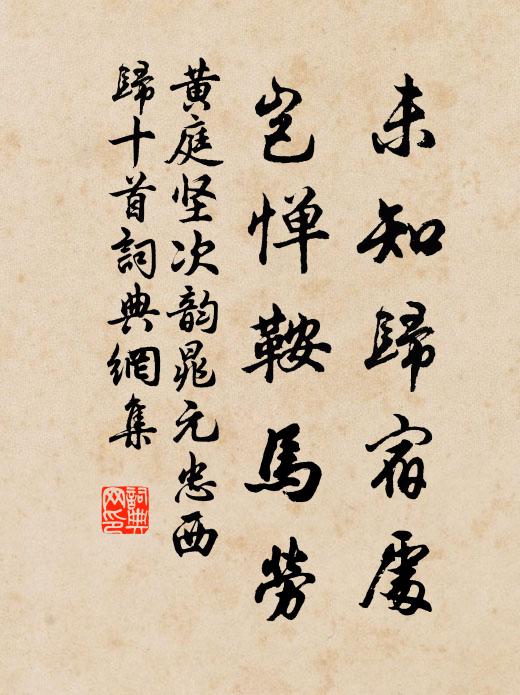 未知歸宿處
豈憚鞍馬勞
黄庭坚次韵晁元忠西
歸十首詞典網集
詞典
网印